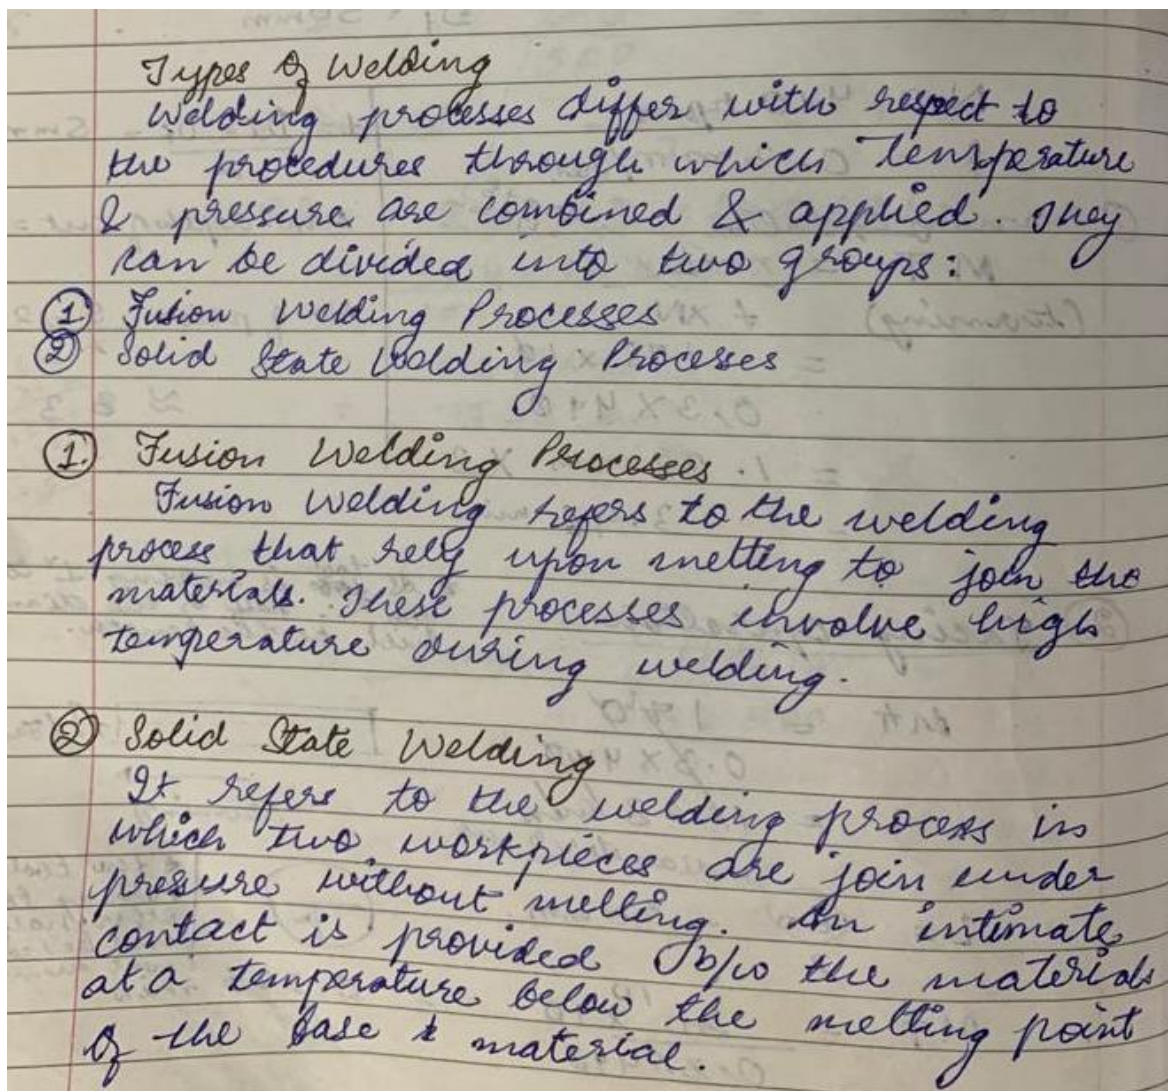 Types of Welding
Welding processes differ with respect to
the procedures through which Temperature
& pressure are combined & applied. They
can be divided into two groups:
① Fusion Welding Processes
② Solid State Welding Processes
① Fusion Welding Processes.
Fusion Welding refers to the welding
process that rely upon melting to join the
materials. These processes involve high
temperature during welding.
② Solid State Welding
It refers to the welding process in
which two workpieces are join under
pressure without melling. An intimate
contact is provided b/w the materials
at a temperature below the melting point
of the base material.